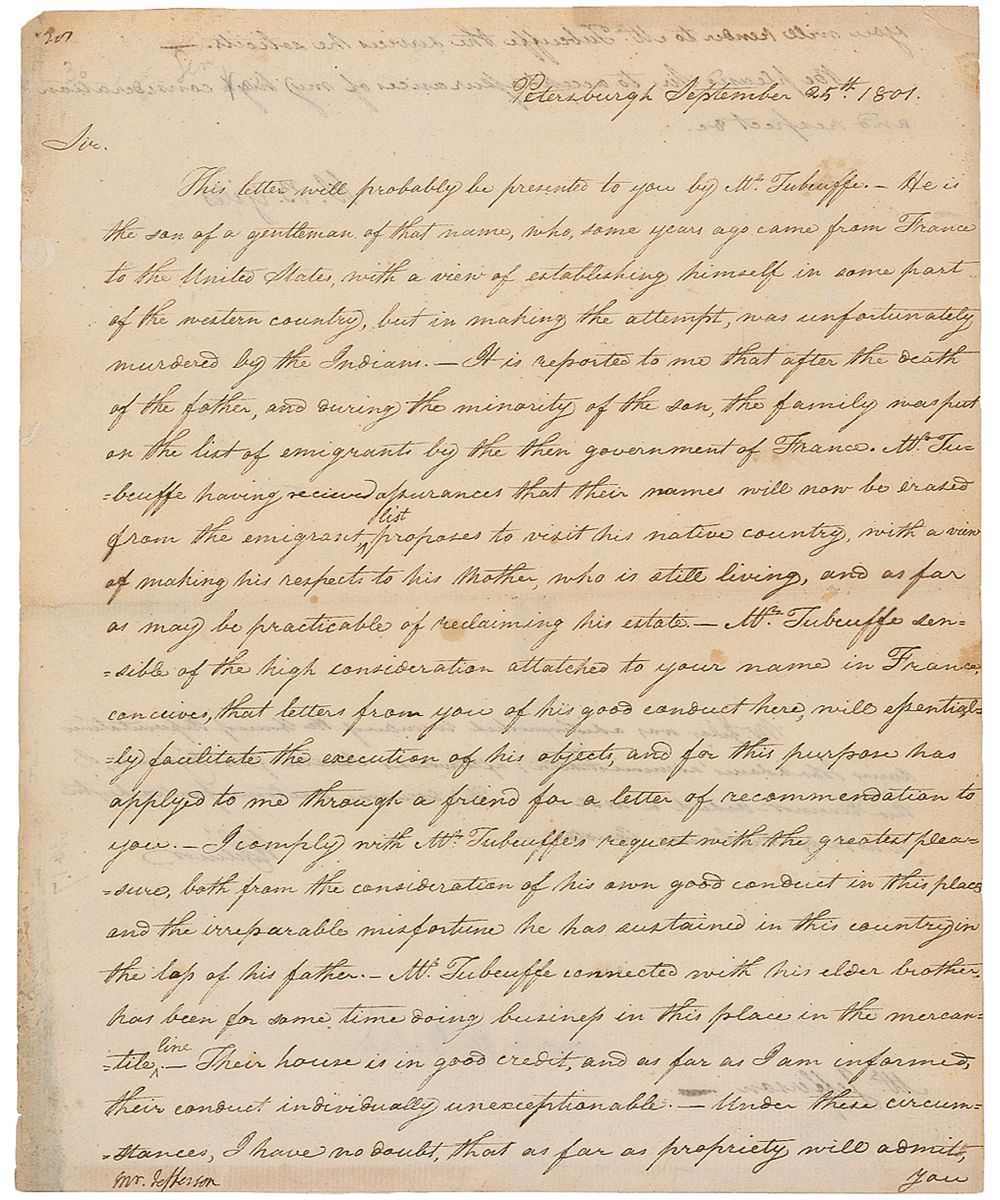 Petersburgh September 25th. 1801.
Sir.
This letter will probably be presented to you by Mr. Tubeuffe. — He is
the son of a gentleman of that name, who, some years ago came from France
to the United States, with a view of establishing himself in some part
of the western country, but in making the attempt, was unfortunately
murdered by the Indians. — It is reported to me that after the death
of the father, and during the minority of the son, the family was put
on the list of emigrants by the then government of France. Mr. Tu-
=beuffe having recieved assurances that their names will now be erased
list
from the emigrant ^ proposes to visit his native country, with a view
of making his respects to his Mother, who is still living, and as far
as may be practicable of reclaiming his estate — Mr. Tubeuffe sen=
=sible of the high consideration attached to your name in France,
conceives, that letters from you of his good conduct here, will essential=
=ly facilitate the execution of his objects, and for this purpose has
applyed to me through a friend for a letter of recommendation to
you. — I comply with Mr. Tubeuffe's request with the greatest plea=
=sure, both from the consideration of his own good conduct in this place
and the irreparable misfortune he has sustained in this country in
the loss of his father. — Mr. Tubeuffe connected with his elder brother,
has been for some time doing business in this place in the mercan=
line
=tile ^. — Their house is in good credit, and as far as I am informed,
their conduct individually unexceptionable. — Under these circum=
=stances, I have no doubt, that as far as propriety will admit,
Mr. Jefferson
you